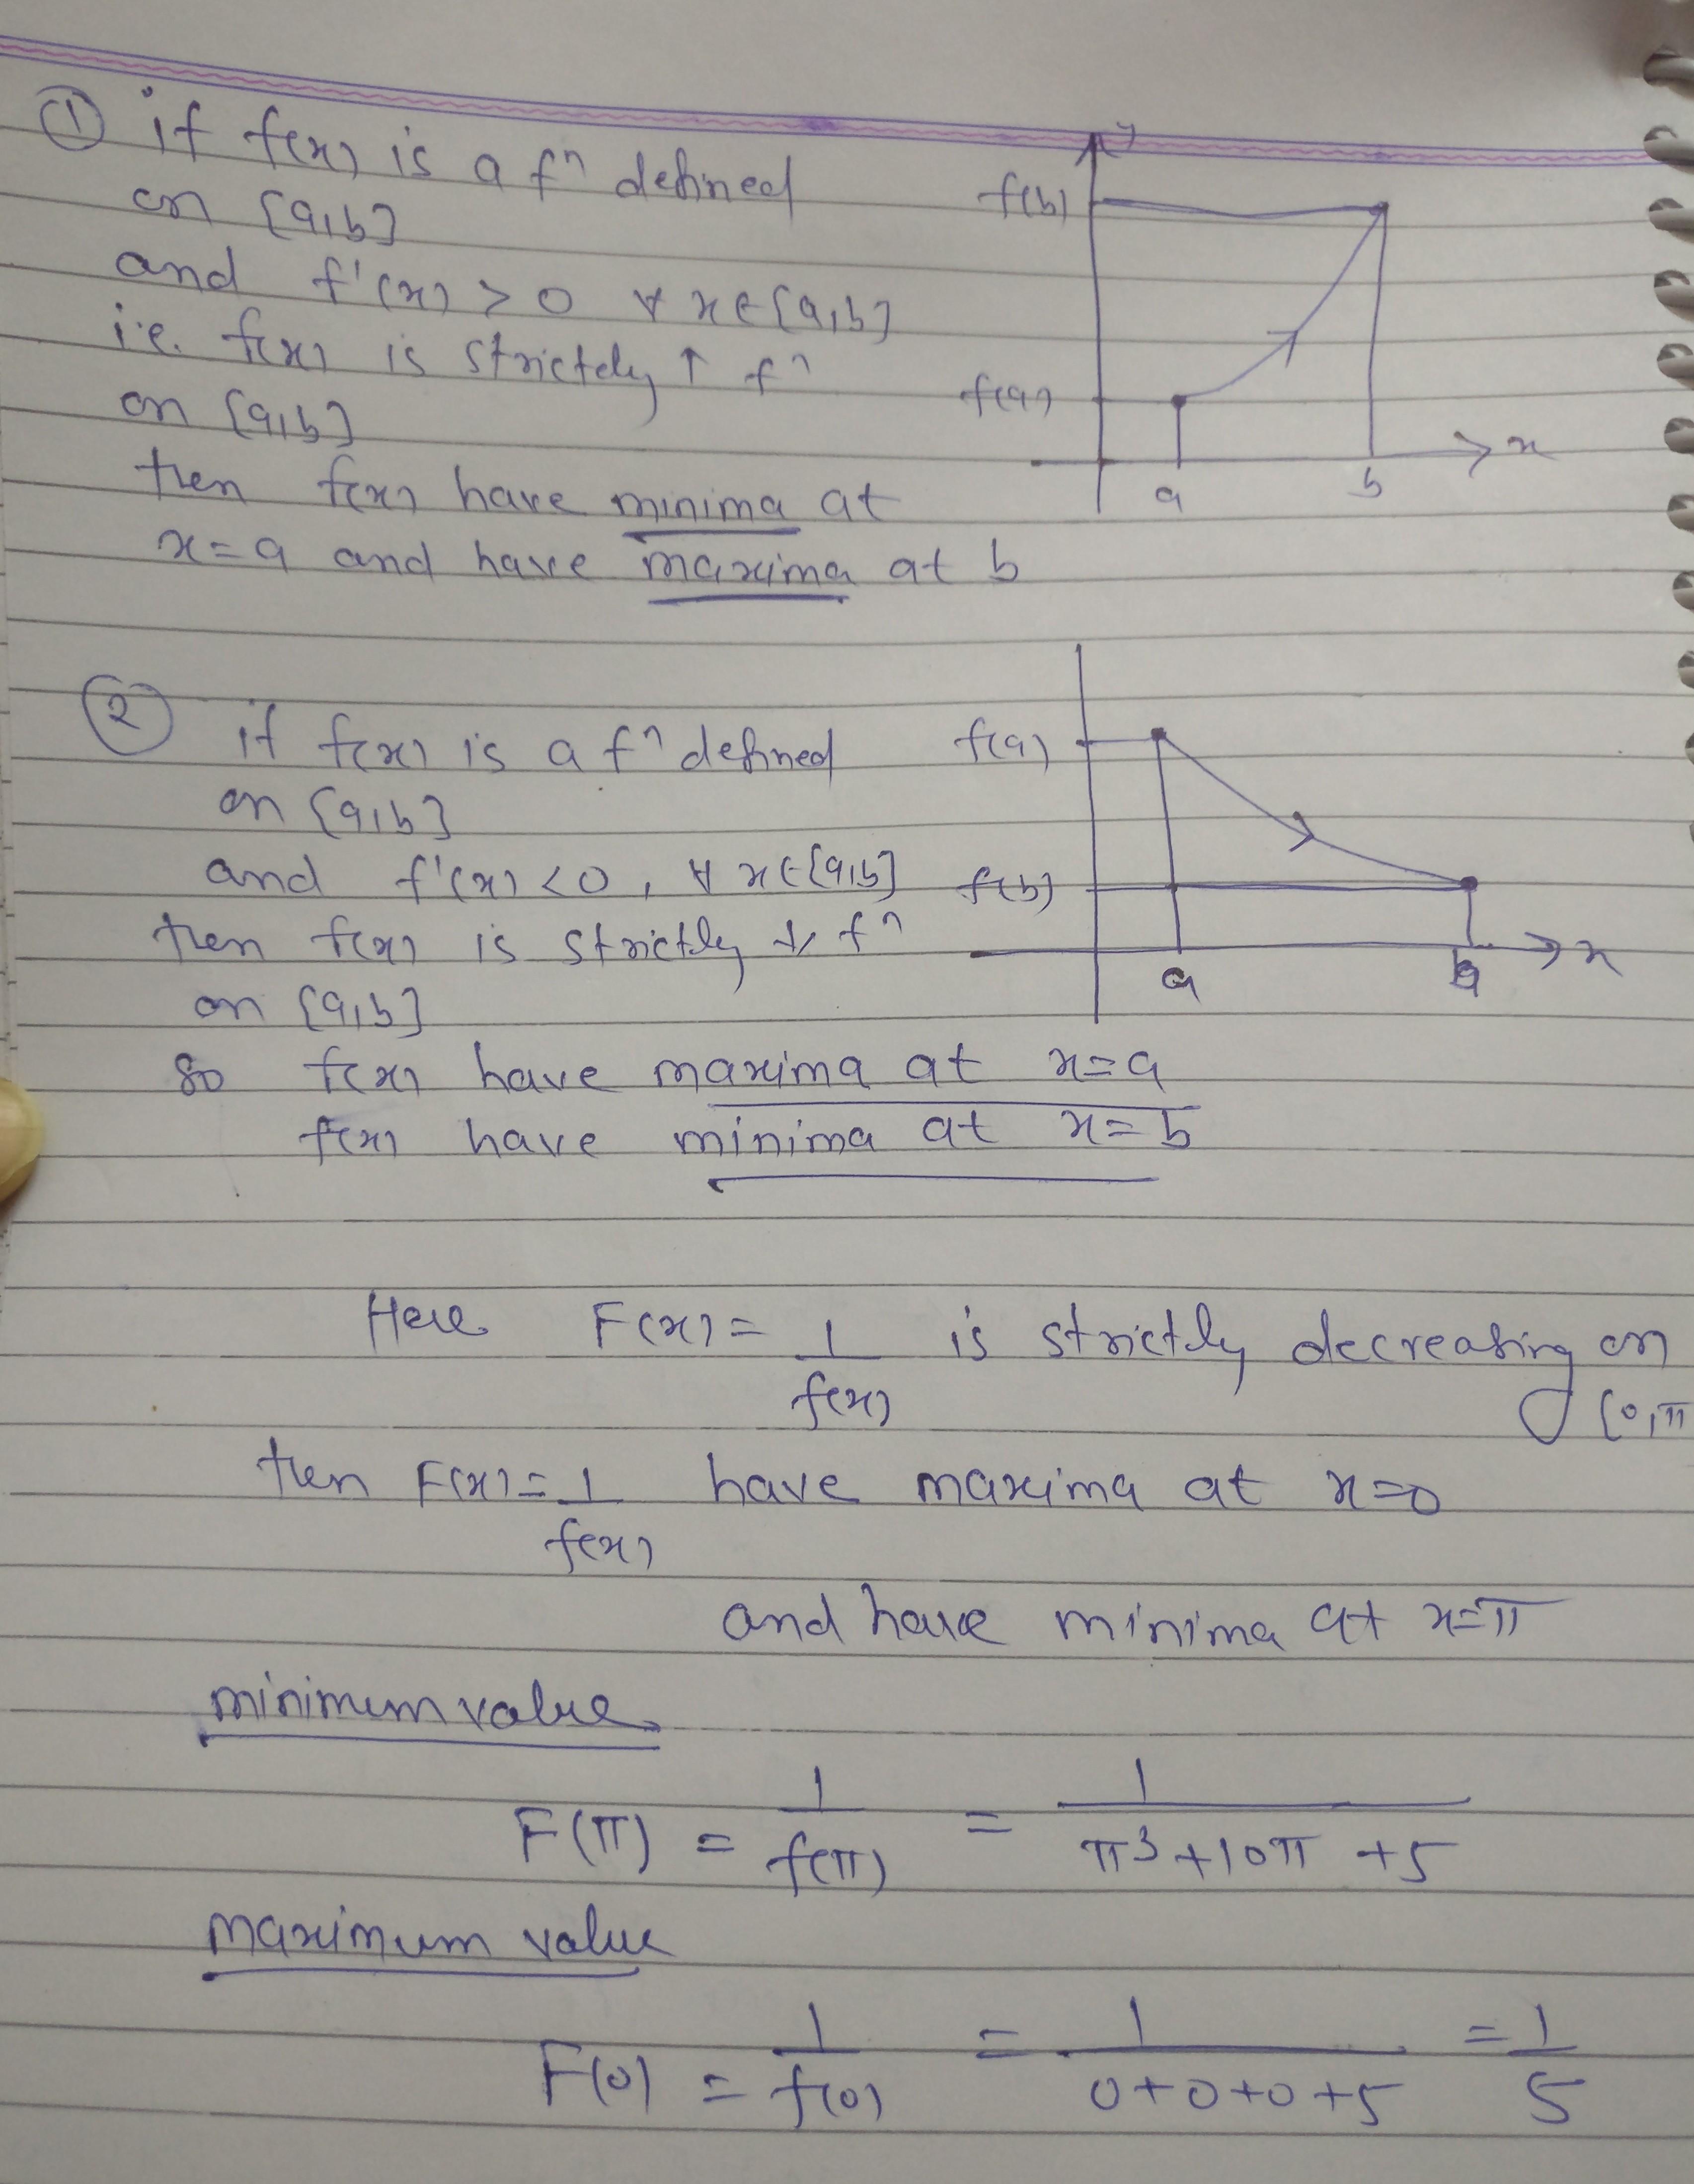 ① if f(x) is a fⁿ defined
on [a,b]
and f'(x) > 0 ∀ x∈[a,b]
i.e. f(x) is strictely ↑ fⁿ
on [a,b]
then f(x) have minima at
x=a and have maxima at b
y
f(b)
f(a)
a b x
② if f(x) is a fⁿ defined
on [a,b]
and f'(x) <0, ∀ x∈[a,b]
then f(x) is strictly ↓ fⁿ
on [a,b]
so f(x) have maxima at x=a
f(x) have minima at x=b
f(a)
f(b)
a b x
Here F(x) = 1/f(x) is strictly decreasing on [0,π
then F(x) = 1/f(x) have maxima at x=0
and have minima at x=π
minimum value
F(π) = 1/f(π) = 1/(π³+10π+5)
maximum value
F(0) = 1/f(0) = 1/(0+0+0+5) = 1/5